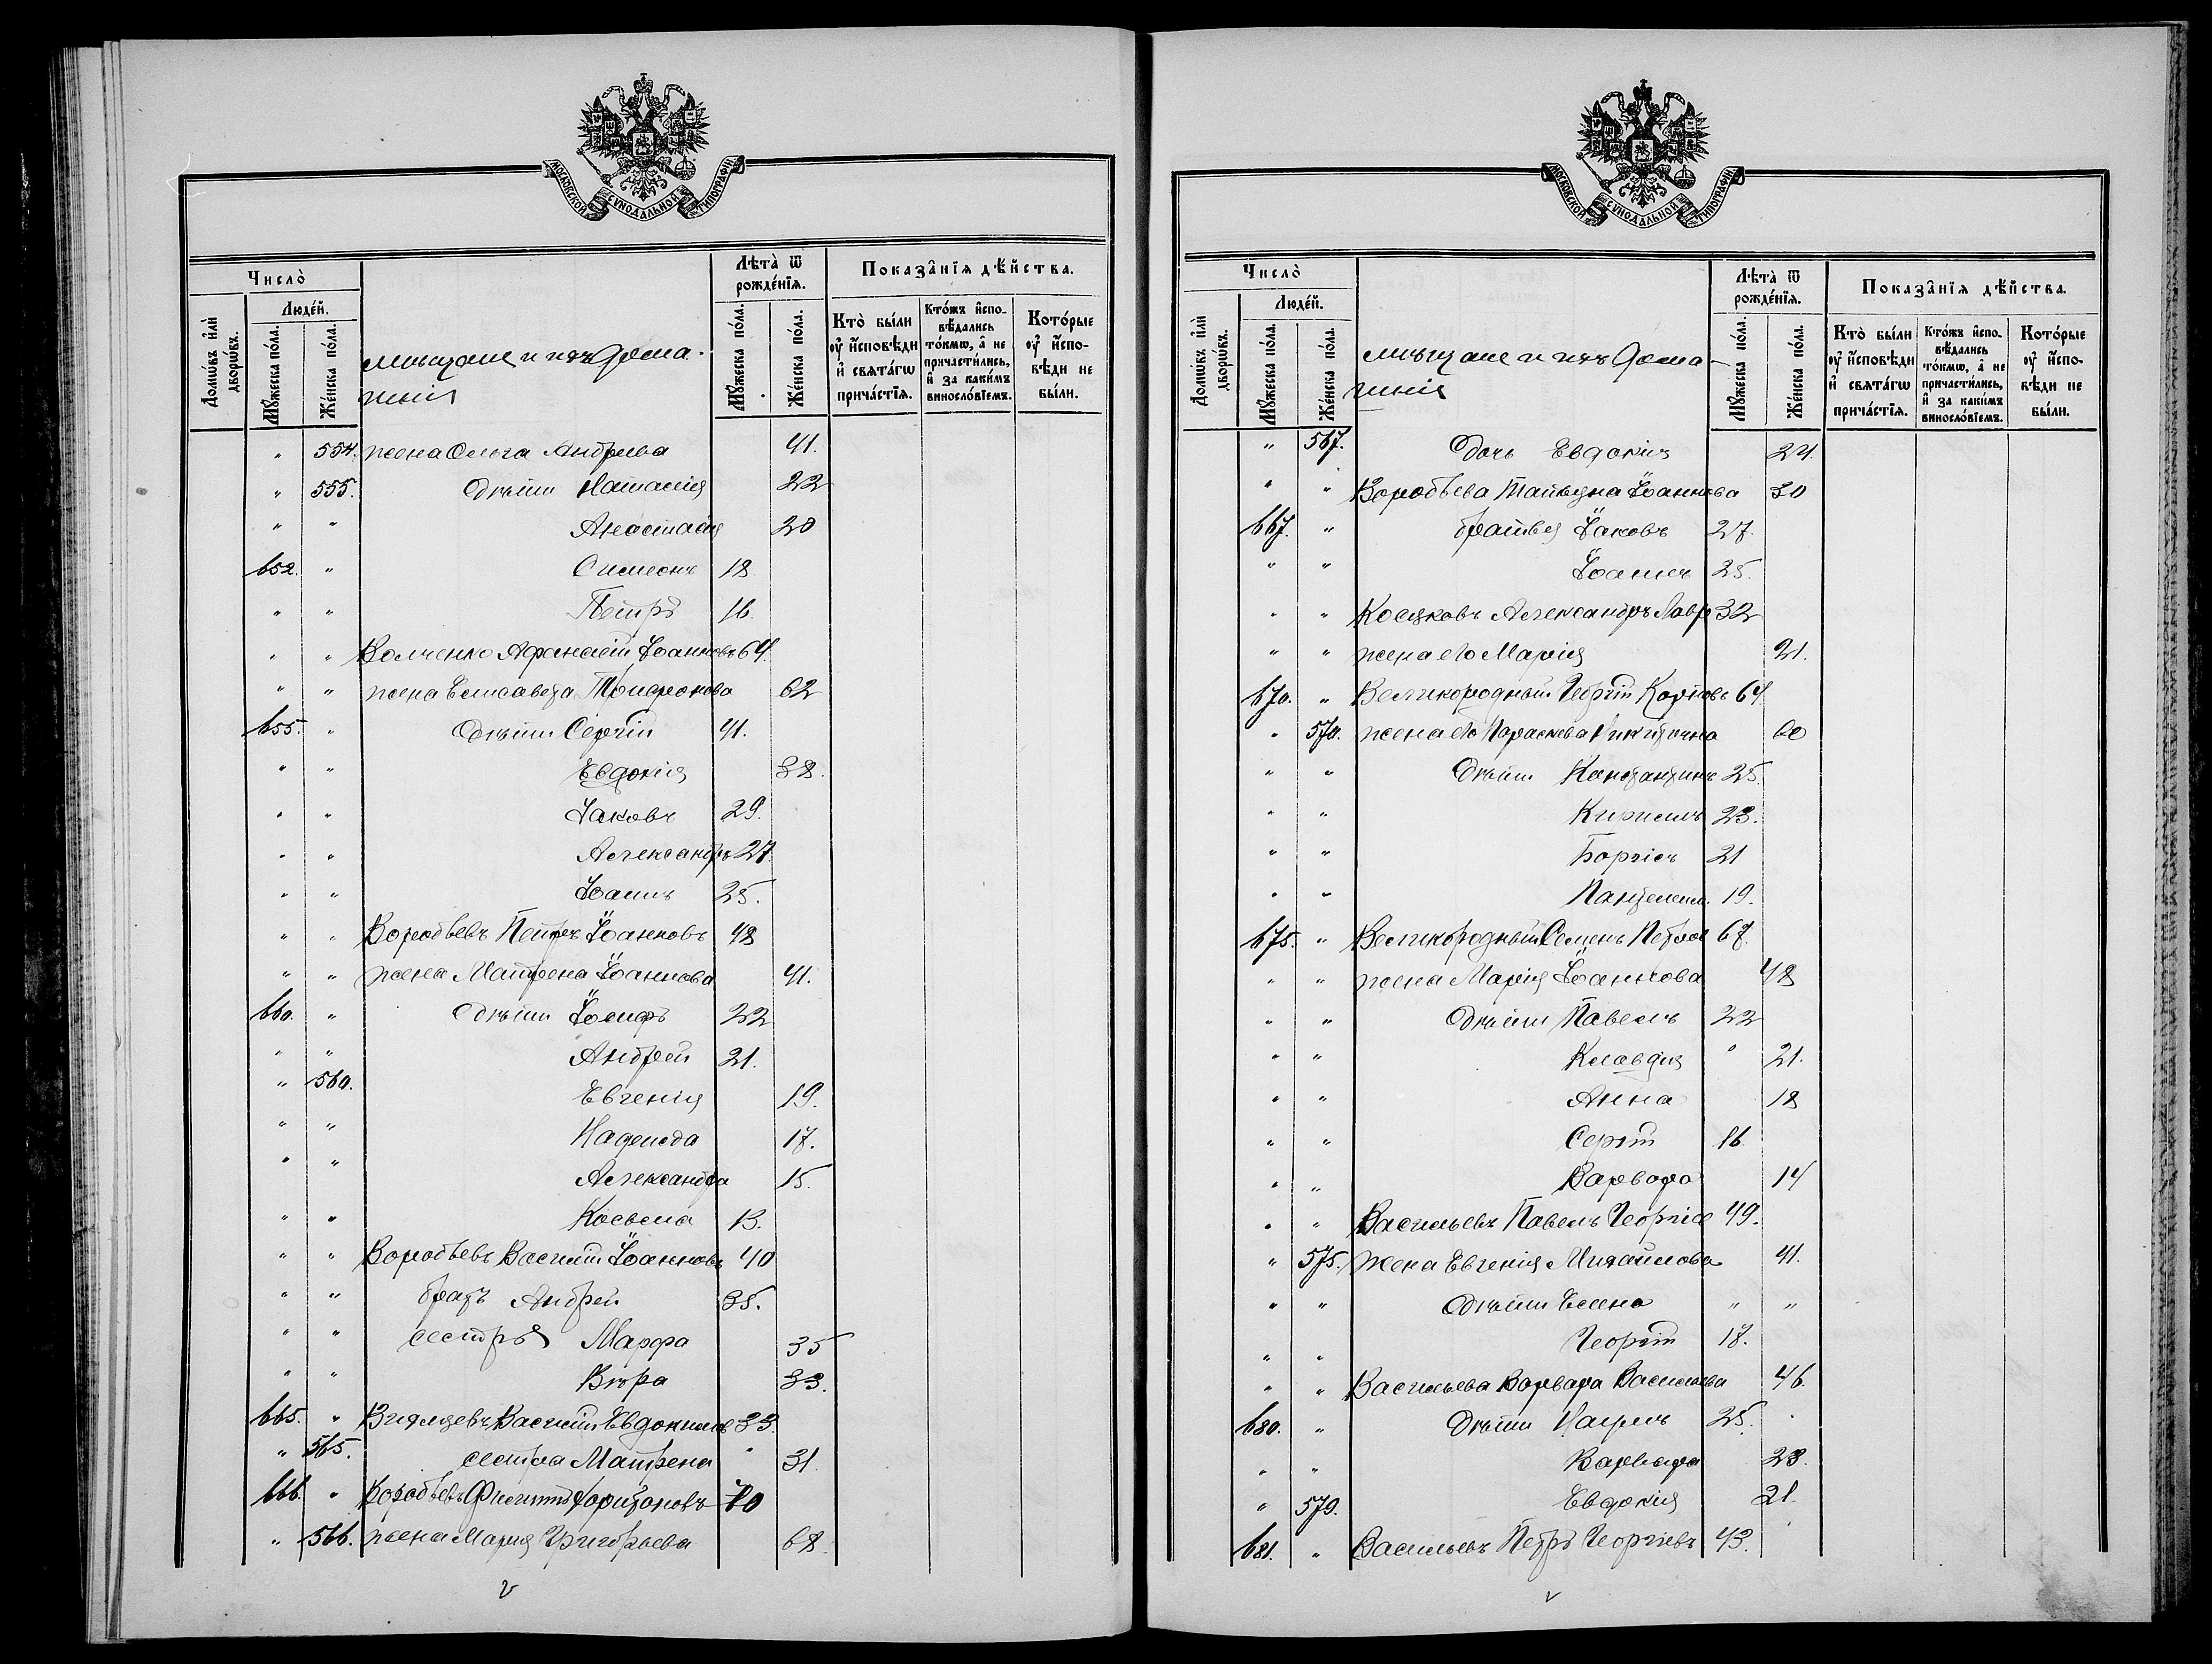 МОСКОВСКОЙ СѴНОДАЛЬНОЙ ТИПОГРАФІИ
Число̀
Людéй.
Домѡвъ и҆лѝ дворѡвъ.
Мꙋжеска пола.
Женска пола.
мѣщане и ихъ дома-
шніе
Лѣта̀ ѿ рождéнїѧ.
Мꙋжеска пола.
Женска пола.
Показа̑нїѧ дѣ́йства.
Кто̀ были ᲂу҆ и҆сповѣди и҆ свѧта́гѡ прича́стїѧ.
Кто́жъ и҆спо-вѣдались то́кмѡ, а҆ не причасти́лись, и҆ за каки́мъ винословїемъ.
Кото́рые ᲂу҆ и҆спо-вѣди не были.
" 554. жена Ольга Андреева 41.
" 555. дѣти Наталія 22
" " Анастасія 20
652. " Симеонъ 18
" " Петръ 16.
" " Волченко Афанасій Іоанновъ 64.
" " жена Елисавета Тимофеонова 62
655. " дѣти Сергій 41.
" " Евдокія 38.
" " Іаковъ 29.
" " Александръ 27.
" " Іоаннъ 25.
" " Воробьевъ Петръ Іоанновъ 48
" " жена Матрена Іоаннова 41.
660. " дѣти Іосифъ 22
" " Андрей 21.
" 560. Евгенія 19.
" " Надежда 17.
" " Александра 15.
" " Косьма 13.
" " Воробьевъ Василій Іоанновъ 40
" " братъ Андрей 35.
" " сестры Марфа 35
" " Вѣра 33.
665. " Василій Евдокимов 33.
" 565. сестра Матрена " 31.
666. " Воробьевъ Филиппъ Харитоновъ 70
" 566. жена Марія Григорьева 68.
МОСКОВСКОЙ СѴНОДАЛЬНОЙ ТИПОГРАФІИ
Число̀
Людéй.
Домѡвъ и҆лѝ дворѡвъ.
Мꙋжеска пола.
Женска пола.
мѣщане и ихъ дома-
шніе
Лѣта̀ ѿ рождéнїѧ.
Мꙋжеска пола.
Женска пола.
Показа̑нїѧ дѣ́йства.
Кто̀ были ᲂу҆ и҆сповѣди и҆ свѧта́гѡ прича́стїѧ.
Кто́жъ и҆спо-вѣдались то́кмѡ, а҆ не причасти́лись, и҆ за каки́мъ винословїемъ.
Кото́рые ᲂу҆ и҆спо-вѣди не были.
" 567. дочь Евдокія 24.
" " Воробьева Татьяна Іоаннова 30
667. " братья Іаковъ 27.
" " Іоаннъ 25.
" " Александръ Лавр 32
" " жена его Марія 21.
670. " Великородный Георгій Карповъ 64
" 570. жена его Параскева Никитична 60
" " дѣти Константинъ 25.
" " Кириллъ 23.
" " Борисъ 21
" " Пантелеим. 19.
675. " Великородный Семенъ Петров 67.
" " жена Марія Іоаннова 48
" " дѣти Павелъ 22
" " Клавдія " 21.
" " Анна 18
" " Сергій 16
" " Варвара 14
" " Васильевъ Павелъ Георгіев 49.
" 575. жена Евгенія Михайлова 41.
" " дѣти Елена " "
" " Георгій 17.
" " Васильева Варвара Васильева 46.
680. " дѣти 25.
" " Варвара 23.
" 579. Евдокія 21.
681. " Васильевъ Петръ Георгіевъ 43.